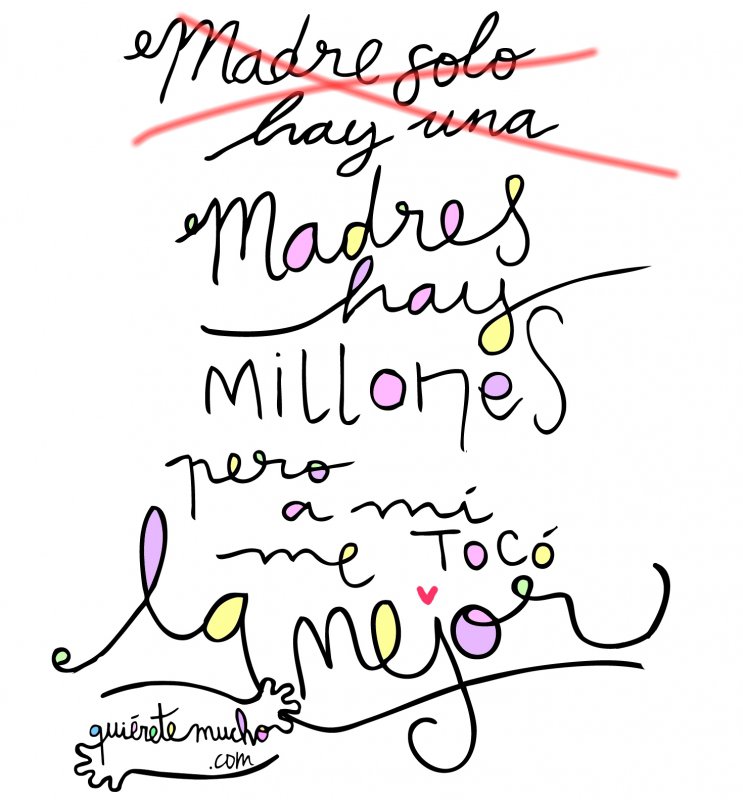 Madre solo
hay una
Madres
hay
MiLLONES
pero
a mí
me TOCÓ
la mejor
quiéretemucho
.com